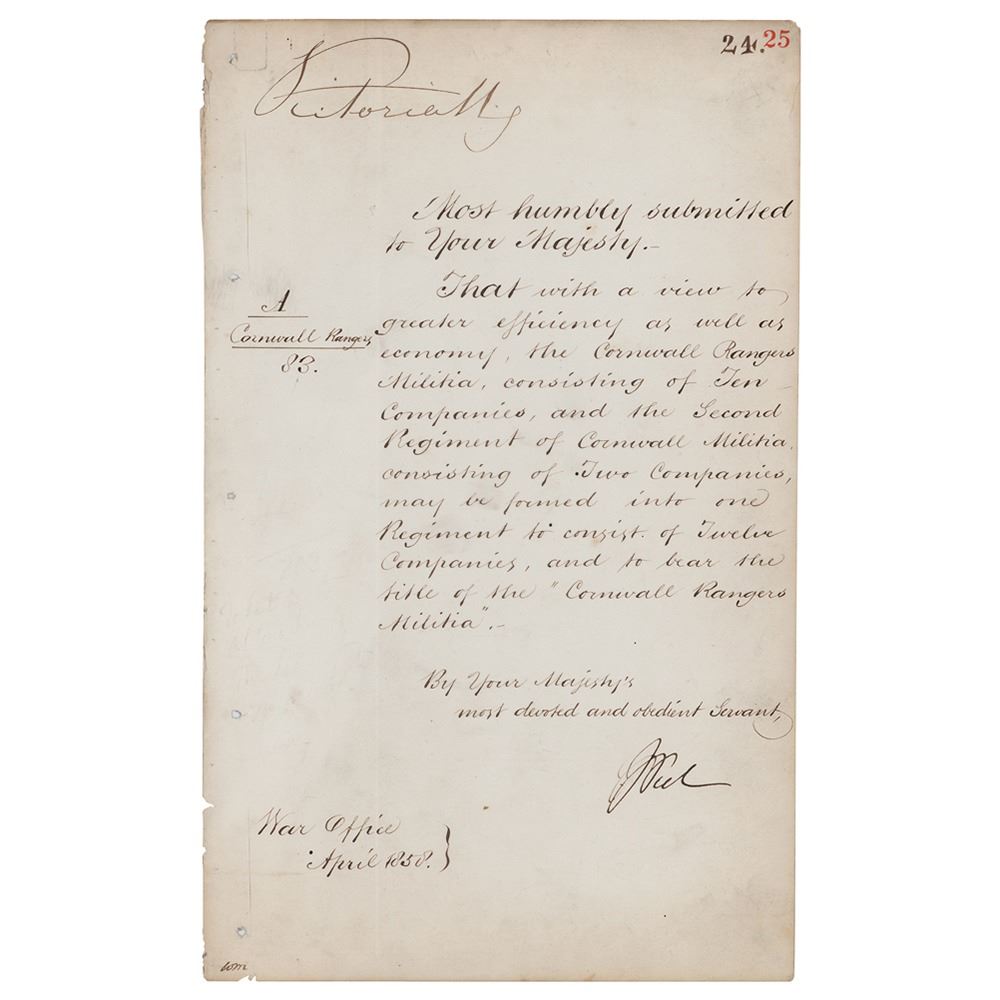 24. 25
Victoria R
Most humbly submitted
to Your Majesty.-
A
Cornwall Rangers
83.
That with a view to
greater efficiency as well as
economy, the Cornwall Rangers
Militia, consisting of Ten
Companies, and the Second
Regiment of Cornwall Militia,
consisting of Two Companies,
may be formed into one
Regiment to consist of Twelve
Companies, and to bear the
title of the "Cornwall Rangers
Militia".-
By Your Majesty's
most devoted and obedient Servant,
JPeel
War Office
April 1858.